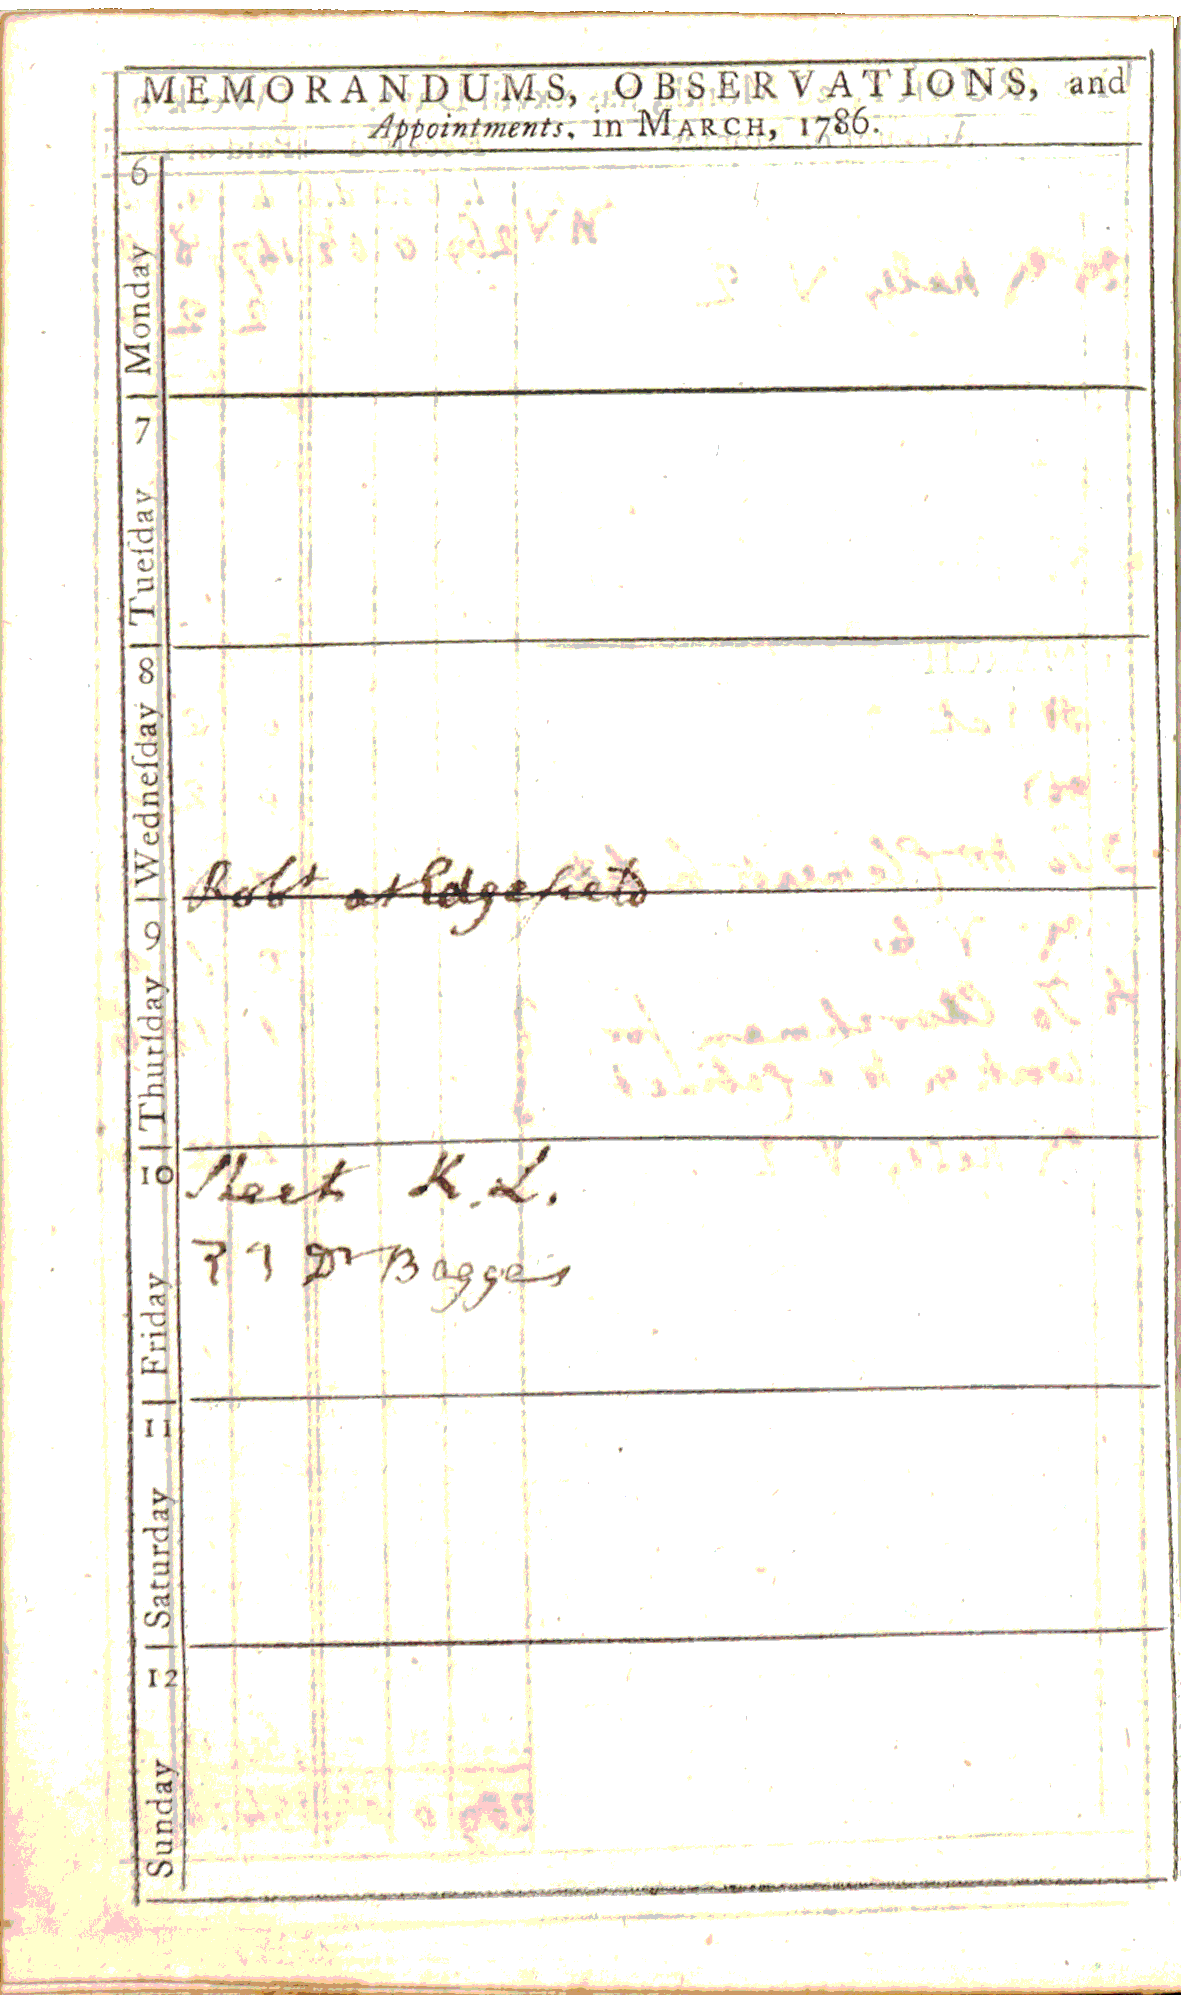 MEMORANDUMS, OBSERVATIONS, and
Appointments, in MARCH, 1786.
6
Monday
7
Tueſday
8
Wedneſday
Robt at Edgefield
9
Thurſday
10
Meet K. L.
Dr Bagges
Friday
11
Saturday
12
Sunday